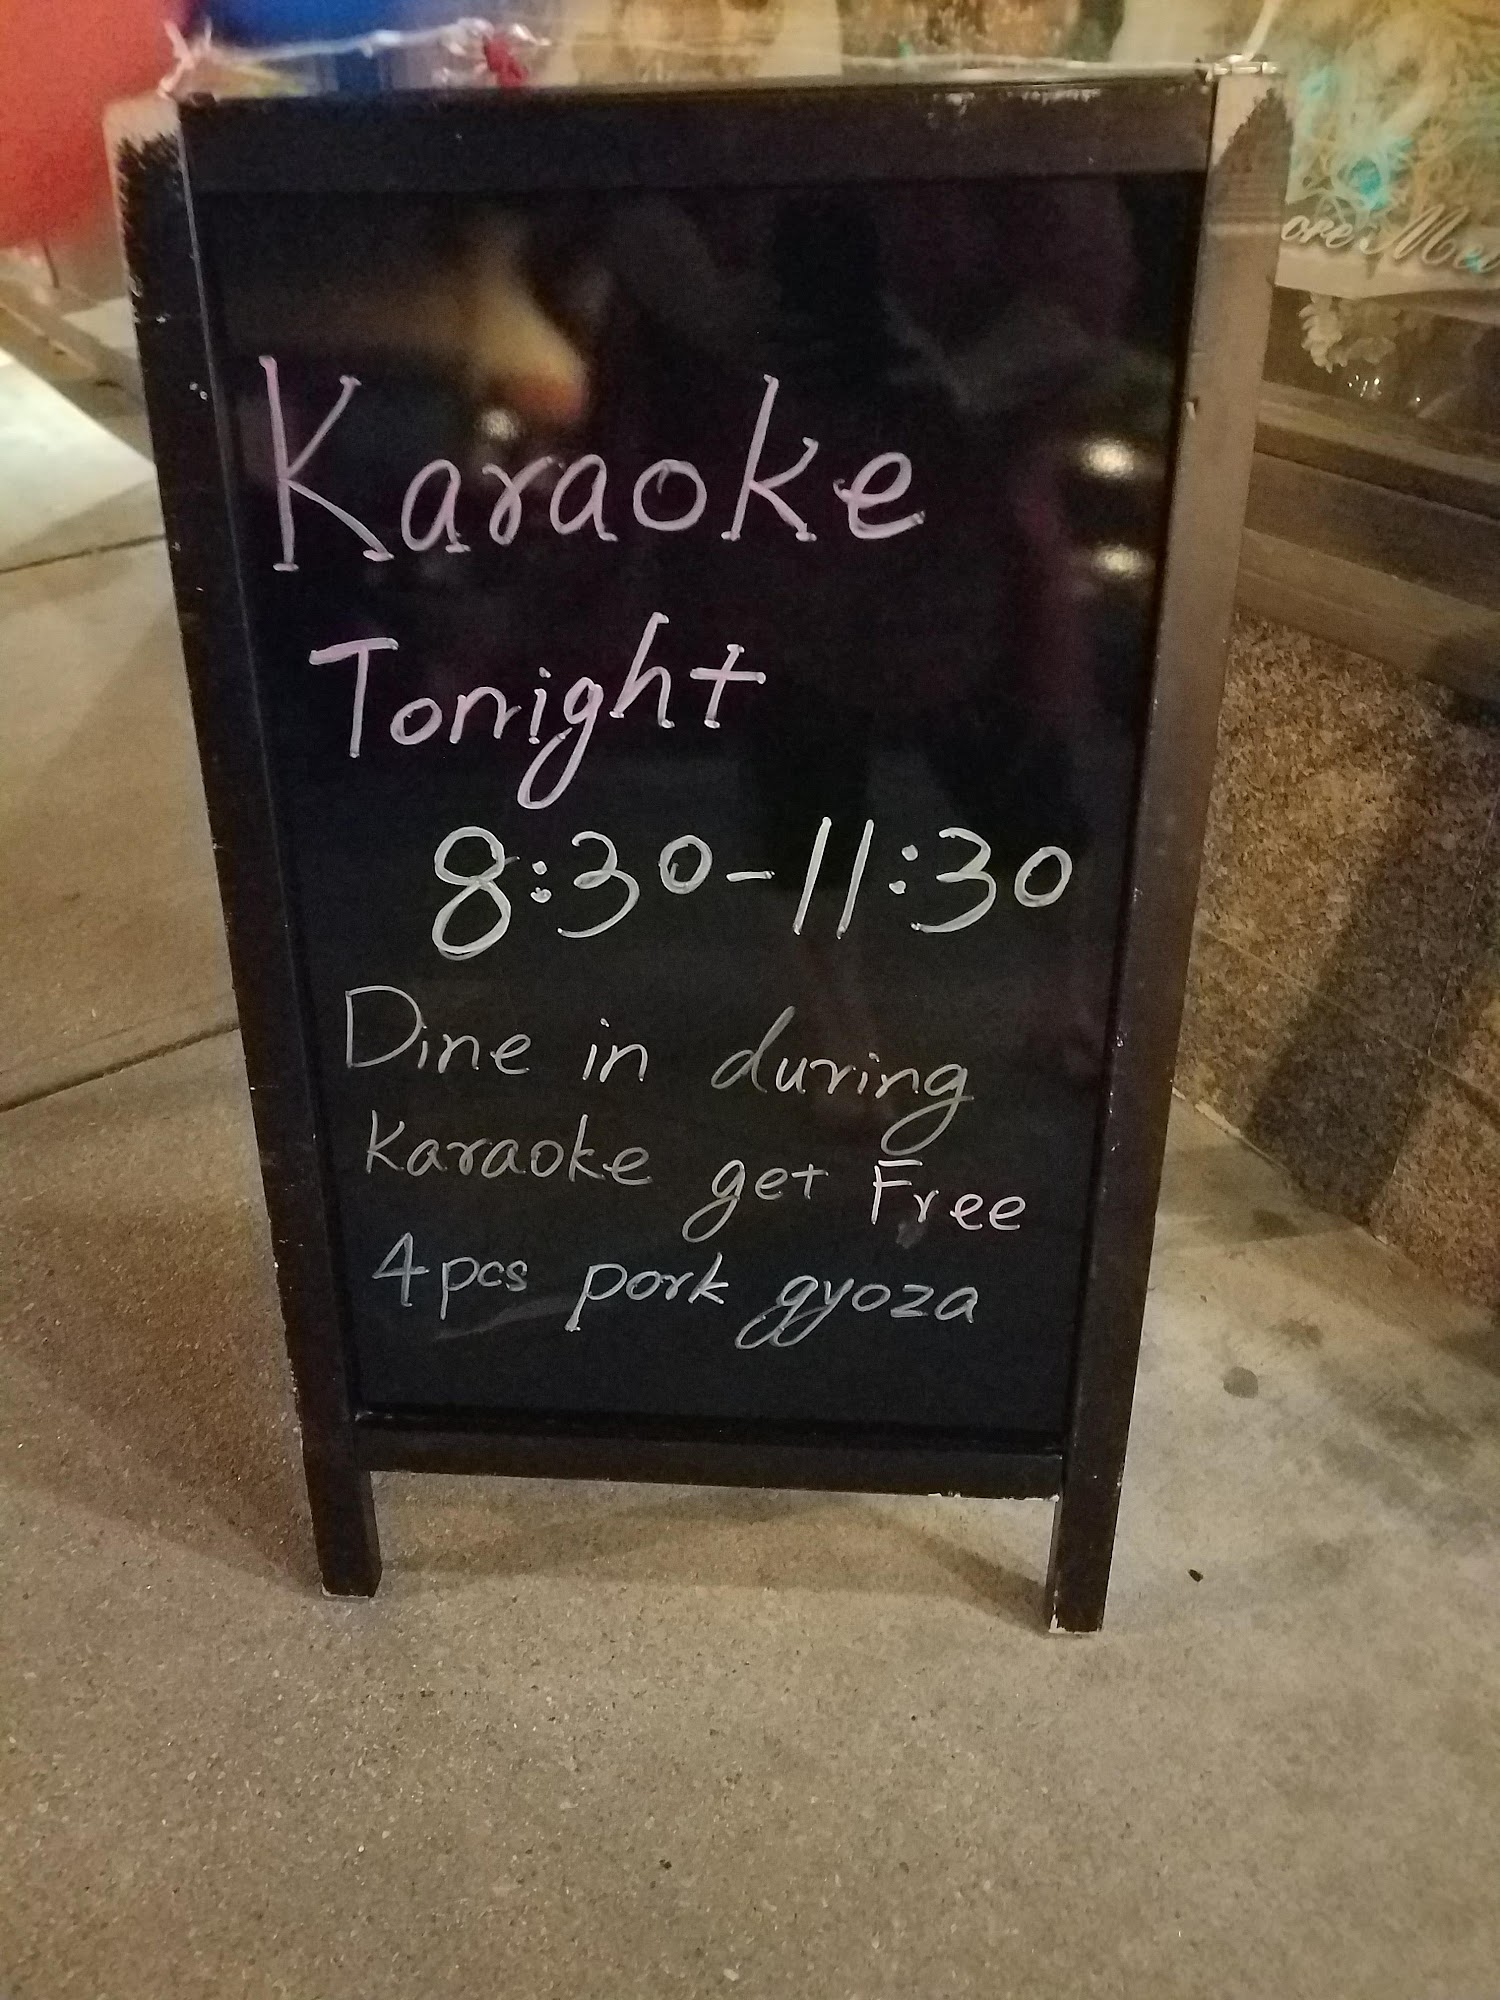 Karaoke
Tonight
8:30-11:30
Dine in during
Karaoke get Free
4pcs pork gyoza
ore